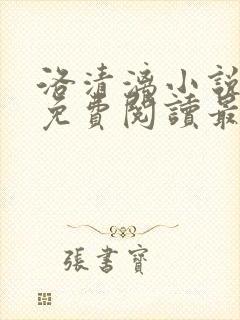 洛清漓小說
免費閱讀最
張書寶